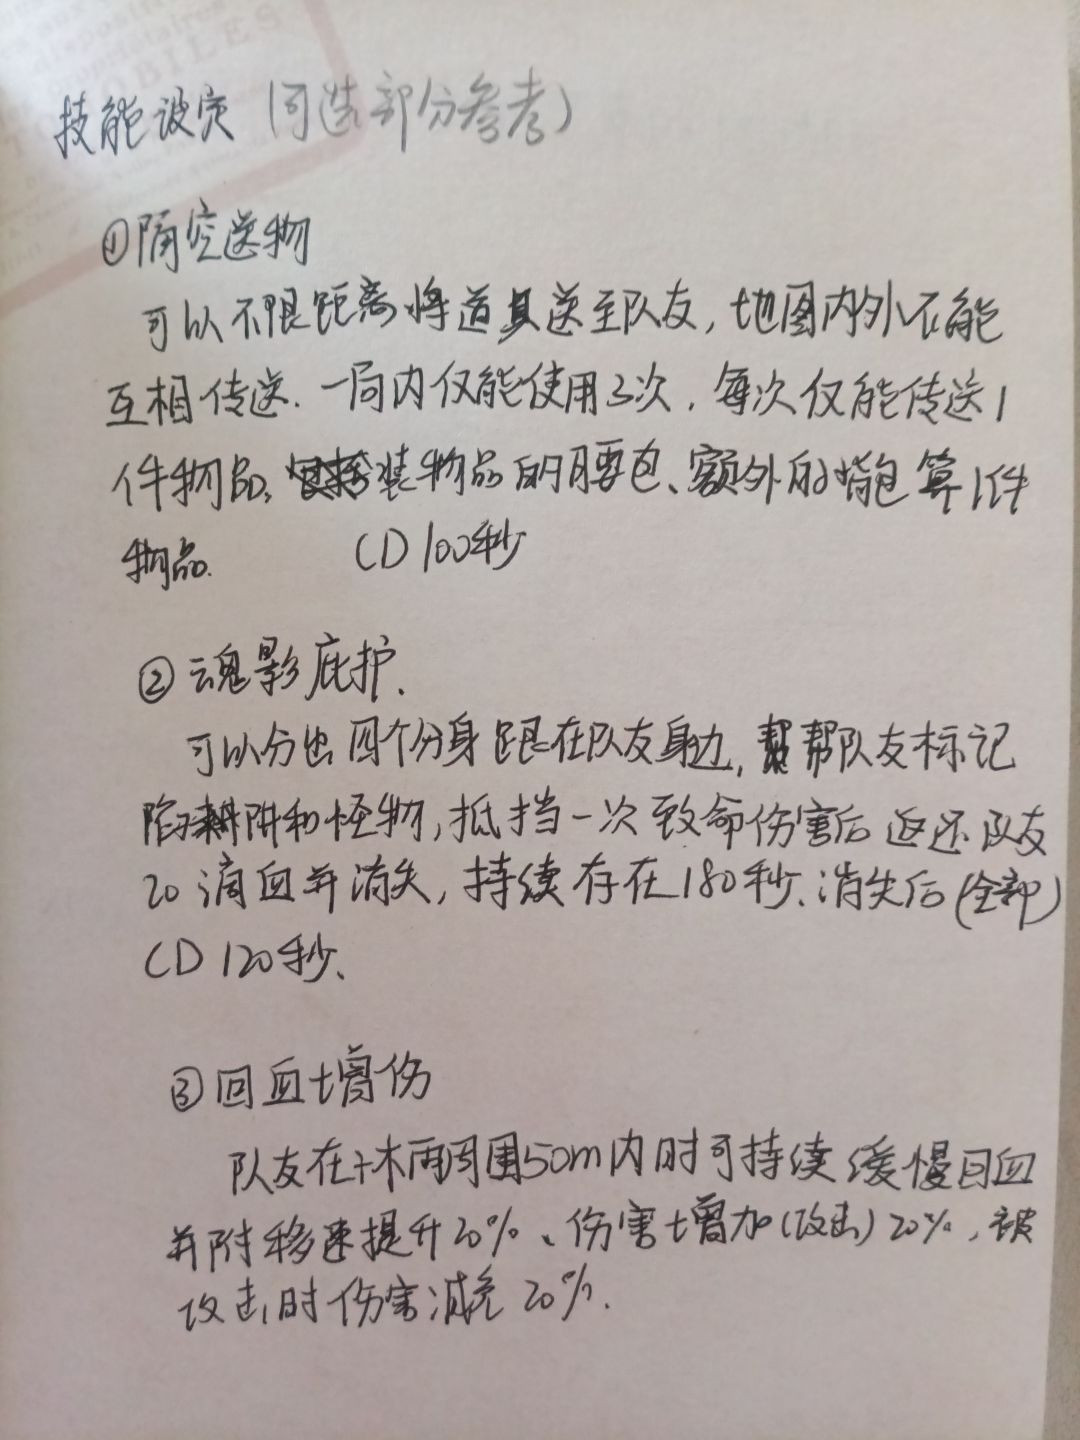 技能设定(可选部分参考)
①隔空送物
可以不限距离将道具送至队友,地图内外不能
互相传送.一局内仅能使用3次,每次仅能传送1
件物品,装物品的腰包、额外的背包算1件
物品. CD100秒
②魂影庇护.
可以分出四个分身跟在队友身边,帮队友标记
陷阱和怪物,抵挡一次致命伤害后返还队友
20滴血并消失,持续存在180秒.消失后(全部)
CD120秒.
③回血增伤
队友在 雨周围50m内时可持续缓慢回血
并附移速提升20%、伤害增加(攻击)20%,被
攻击时伤害减免20%.